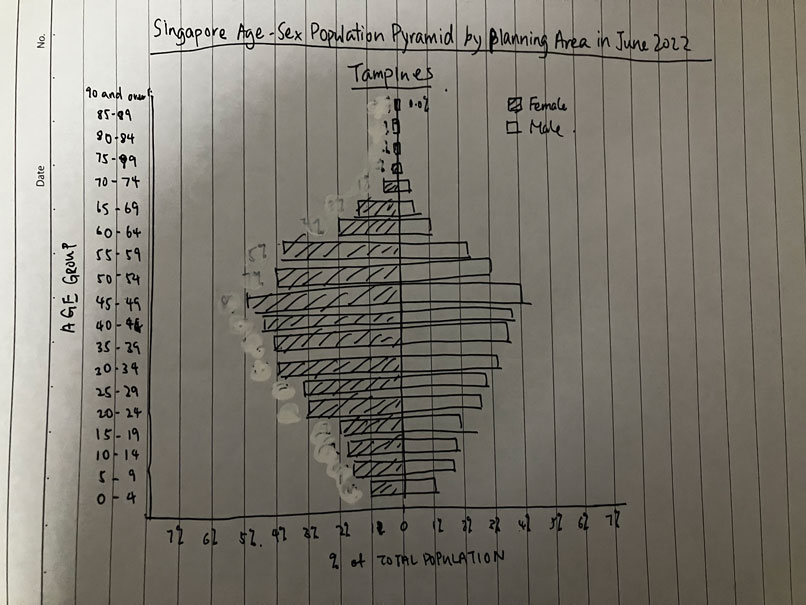 No.
Date
Singapore Age-Sex Population Pyramid by Planning Area in June 2022
Tampines
Female
Male
AGE GROUP
90 and over
85-89
80-84
75-79
70-74
65-69
60-64
55-59
50-54
45-49
40-44
35-39
30-34
25-29
20-24
15-19
10-14
5-9
0-4
0.0%
7% 6% 5% 4% 3% 2% 1% 0 1% 2% 3% 4% 5% 6% 7%
% of TOTAL POPULATION